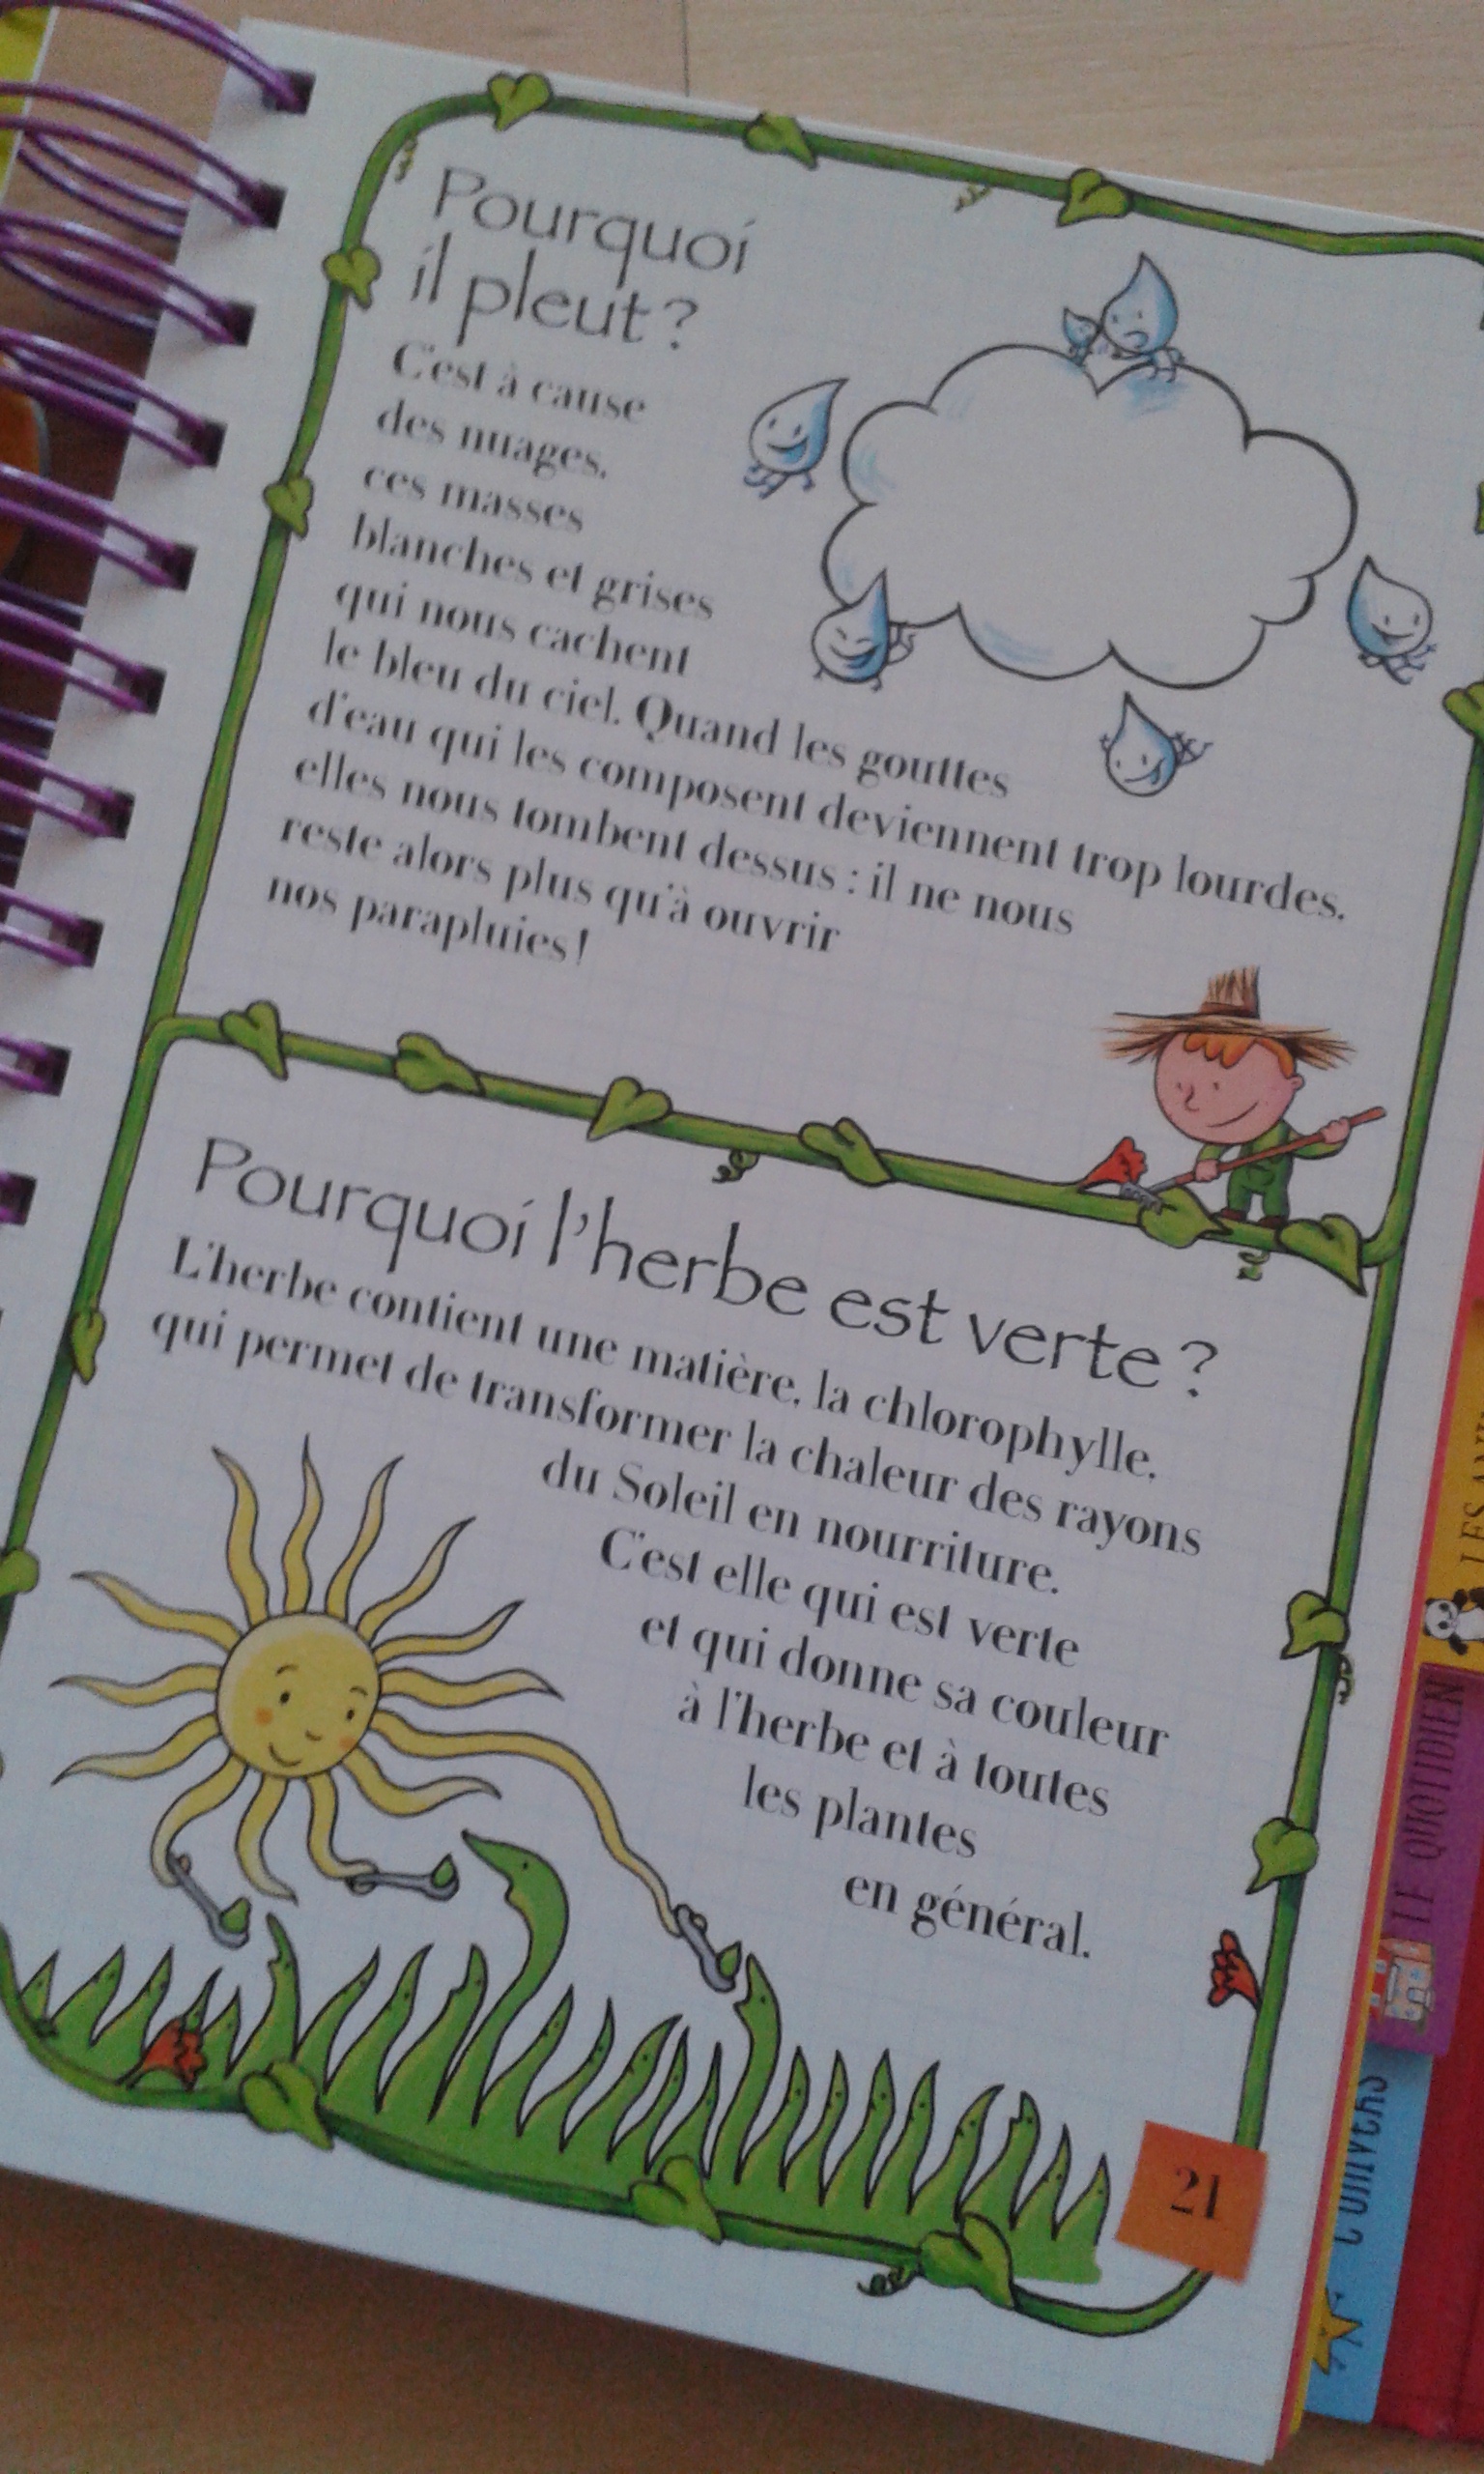 Pourquoi
il pleut ?
C'est à cause
des nuages,
ces masses
blanches et grises
qui nous cachent
le bleu du ciel. Quand les gouttes
d'eau qui les composent deviennent trop lourdes,
elles nous tombent dessus : il ne nous
reste alors plus qu'à ouvrir
nos parapluies !
Pourquoi l'herbe est verte ?
L'herbe contient une matière, la chlorophylle,
qui permet de transformer la chaleur des rayons
du Soleil en nourriture.
C'est elle qui est verte
et qui donne sa couleur
à l'herbe et à toutes
les plantes
en général.
21
LES
LE QUOTIDIEN